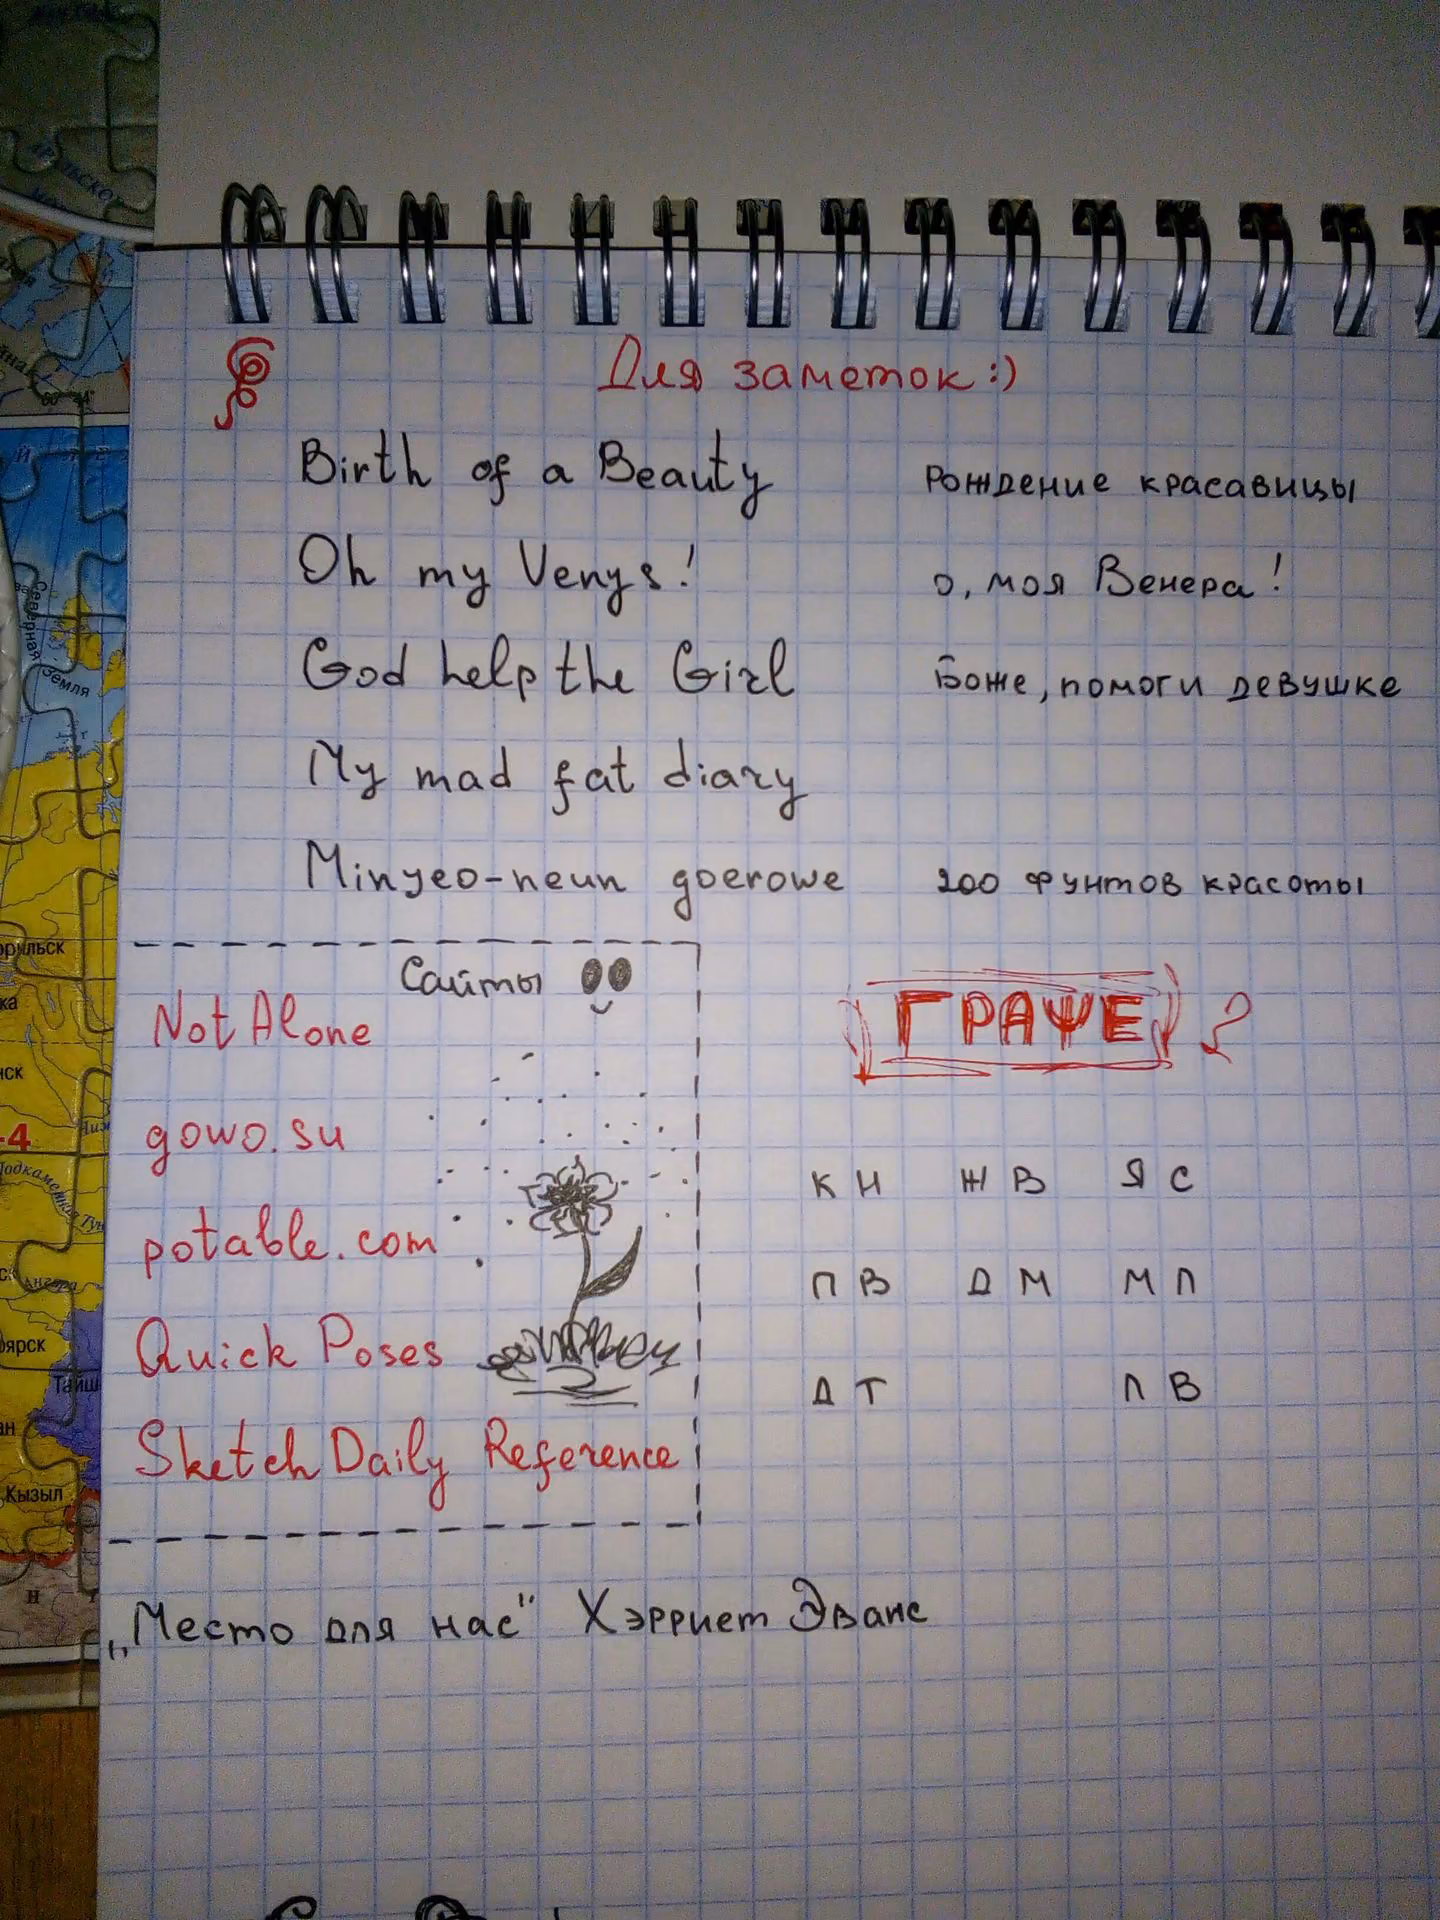 Для заметок :)
Birth of a Beauty рождение красавицы
Oh my Venys! о, моя Венера!
God help the Girl Боже, помоги девушке
My mad fat diary
Minyeo-neun goerowe 200 фунтов красоты
Сайты
NotAlone
gowo.su
potable.com
Quick Poses
Sketch Daily Reference
?
К Н Ж В Я С
П В Д М М Л
Д Т Л В
„Место для нас" Хэрриет Эванс
Северная
Земля
Ангара
Кызыл
-4